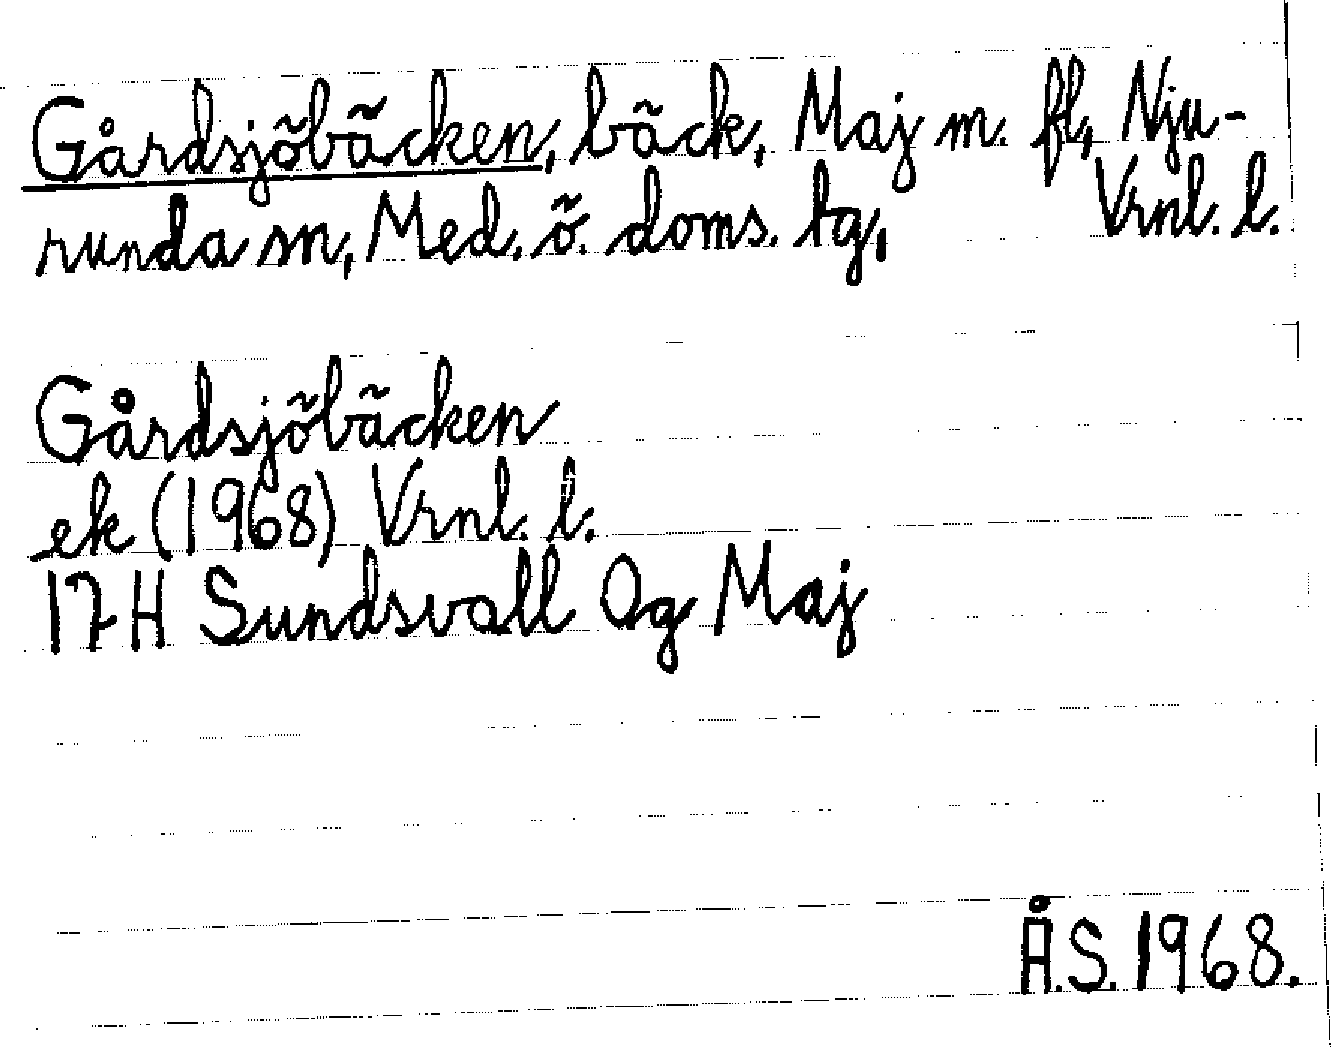 Gårdsjöbäcken, bäck, Maj m. fl, Nju-
runda sn, Med. ö. doms. tg, Vrnl. l.
Gårdsjöbäcken
ek (1968) Vrnl. l.
17H Sundsvall Og Maj
Å.S. 1968.